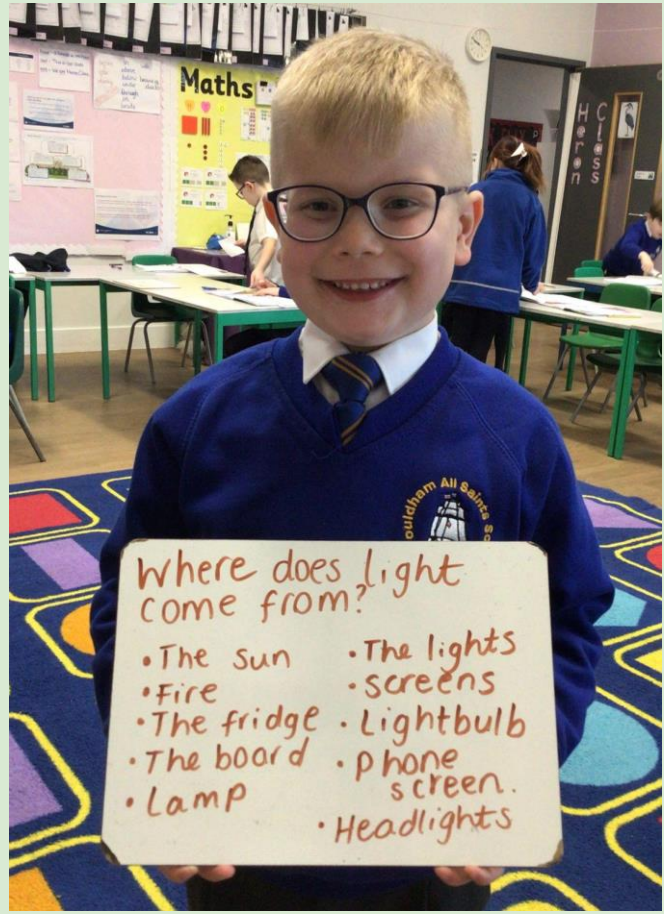 Maths
Heron
Class
ouldham All Saints Sc
Where does light
come from?
• The sun
• Fire
• The fridge
• The board
• Lamp
• The lights
• screens
• Lightbulb
• phone
screen.
• Headlights